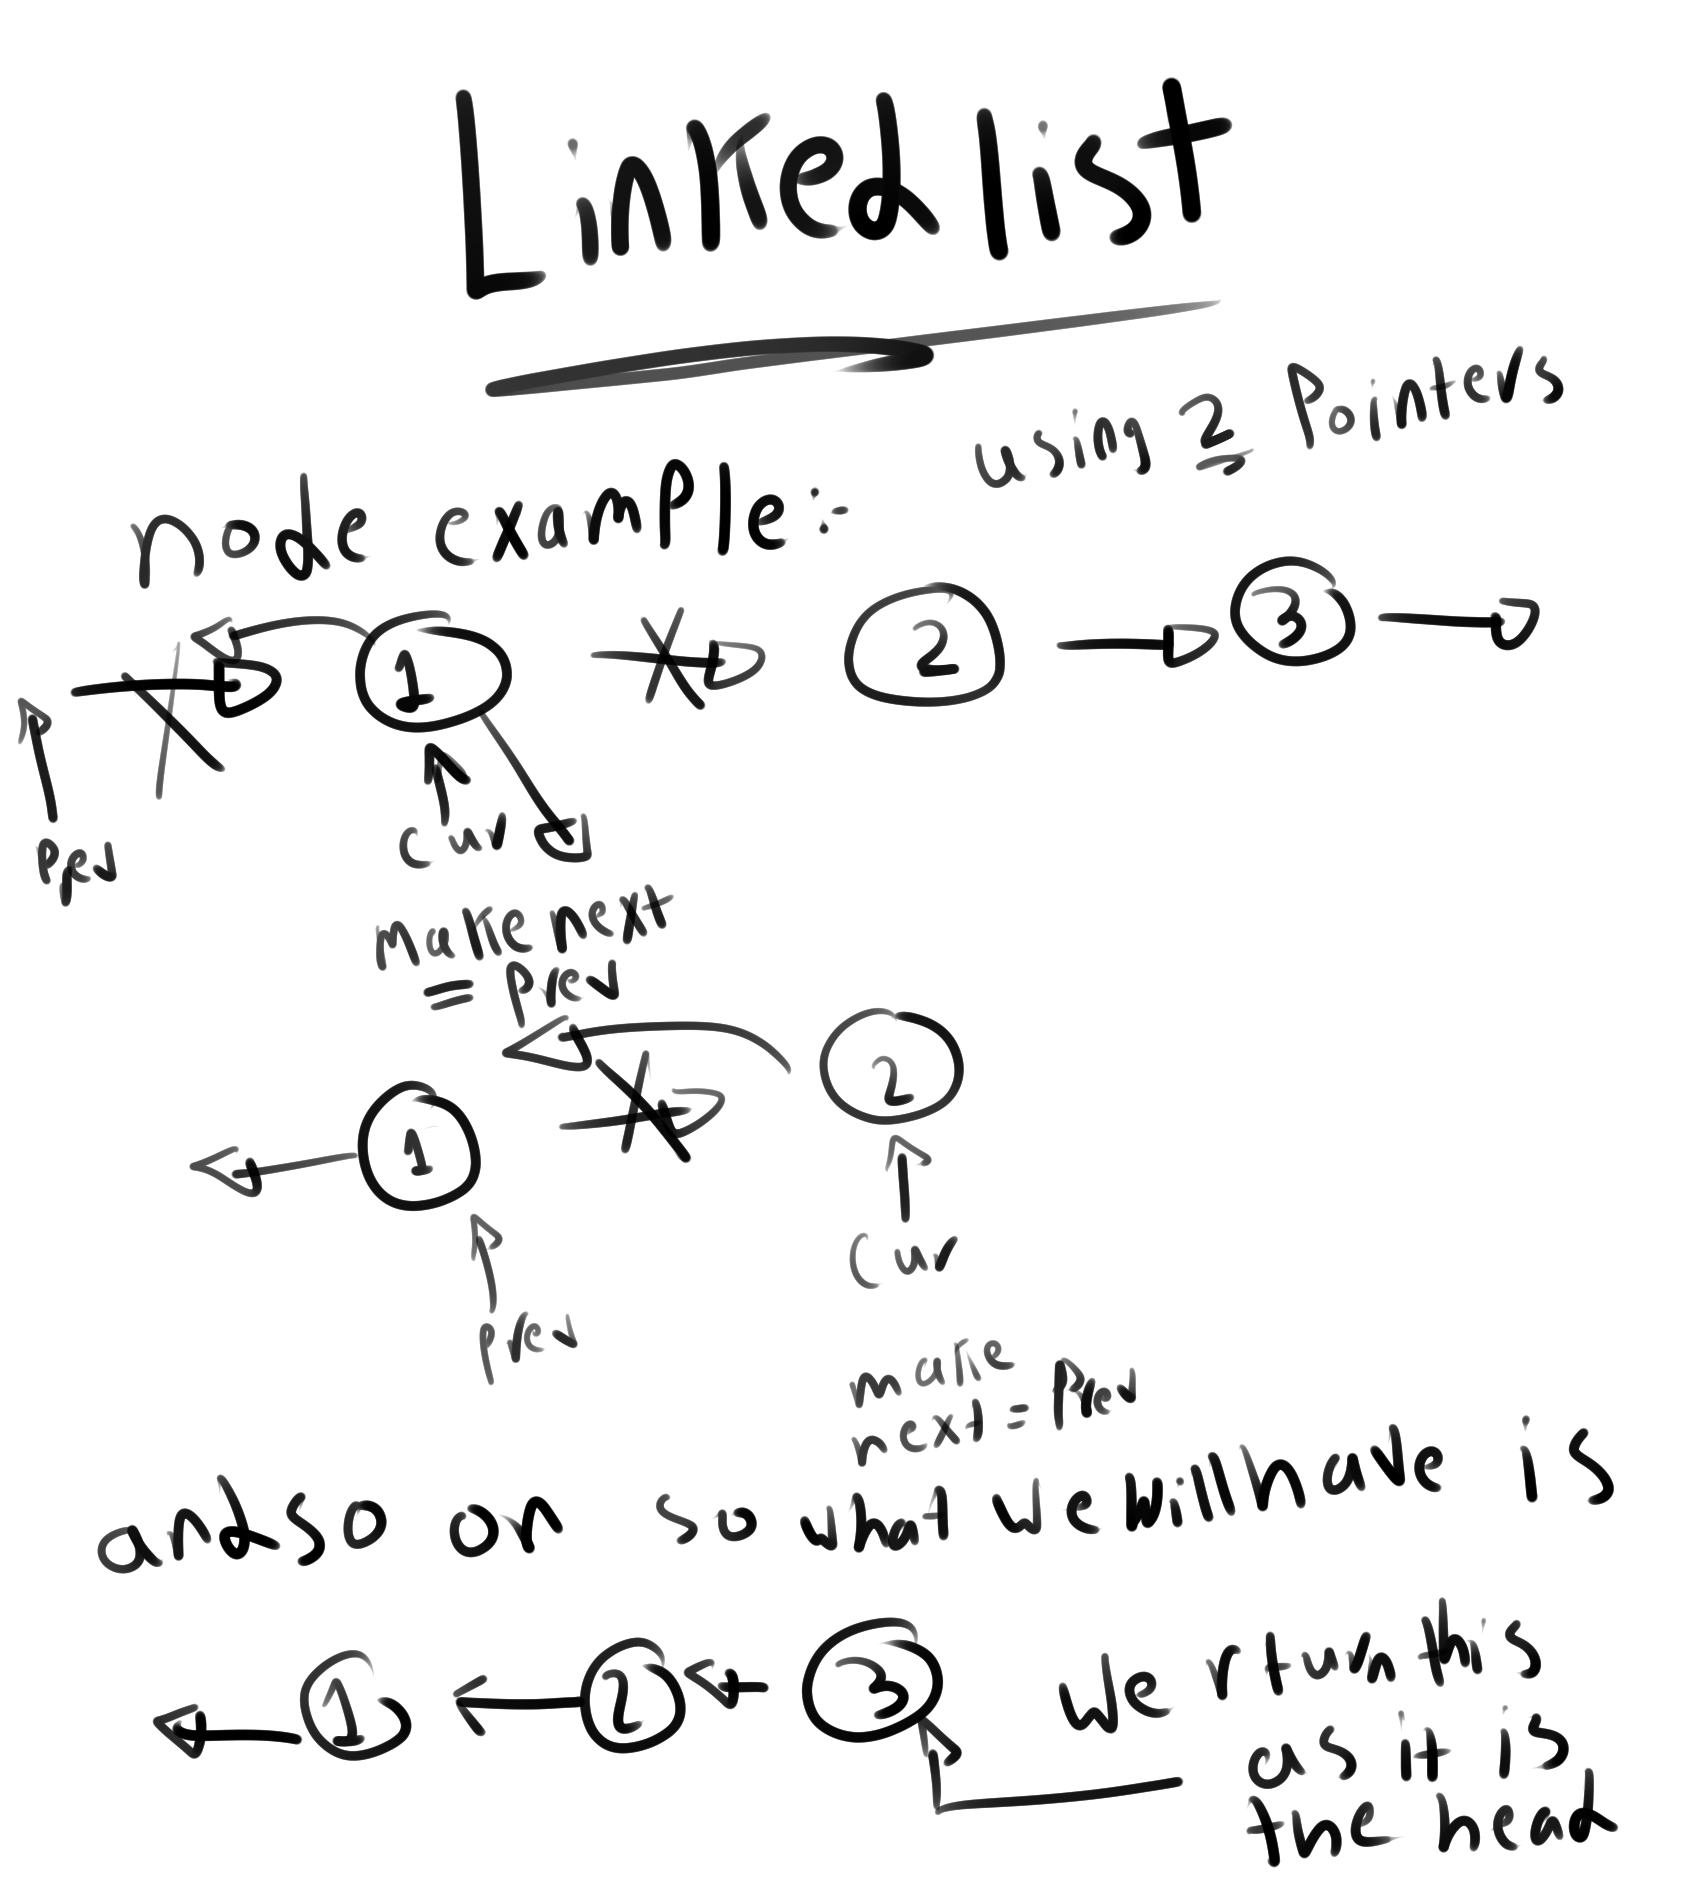 Linked list
using 2 Pointers
node example:-
1 2 3
Prev
Cur
make next
= Prev
1 2
Cur
prev
make
next = Prev
and so on so what we will have is
1 2 3
We rturn this
as it is
the head